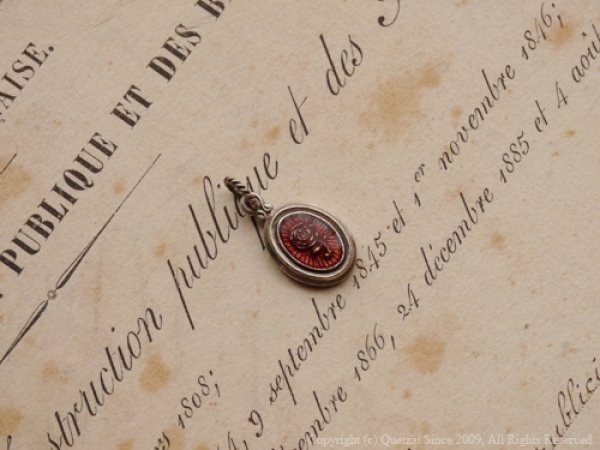 AISE.
PUBLIQUE ET DES B
struction publique et des
rs 1808;
9 septembre 1845 et 1er novembre 1846;
embre 1866, 24 décembre 1885 et 4 août
publici
Copyright (c) Quetzal Since 2009, All Rights Reserved.